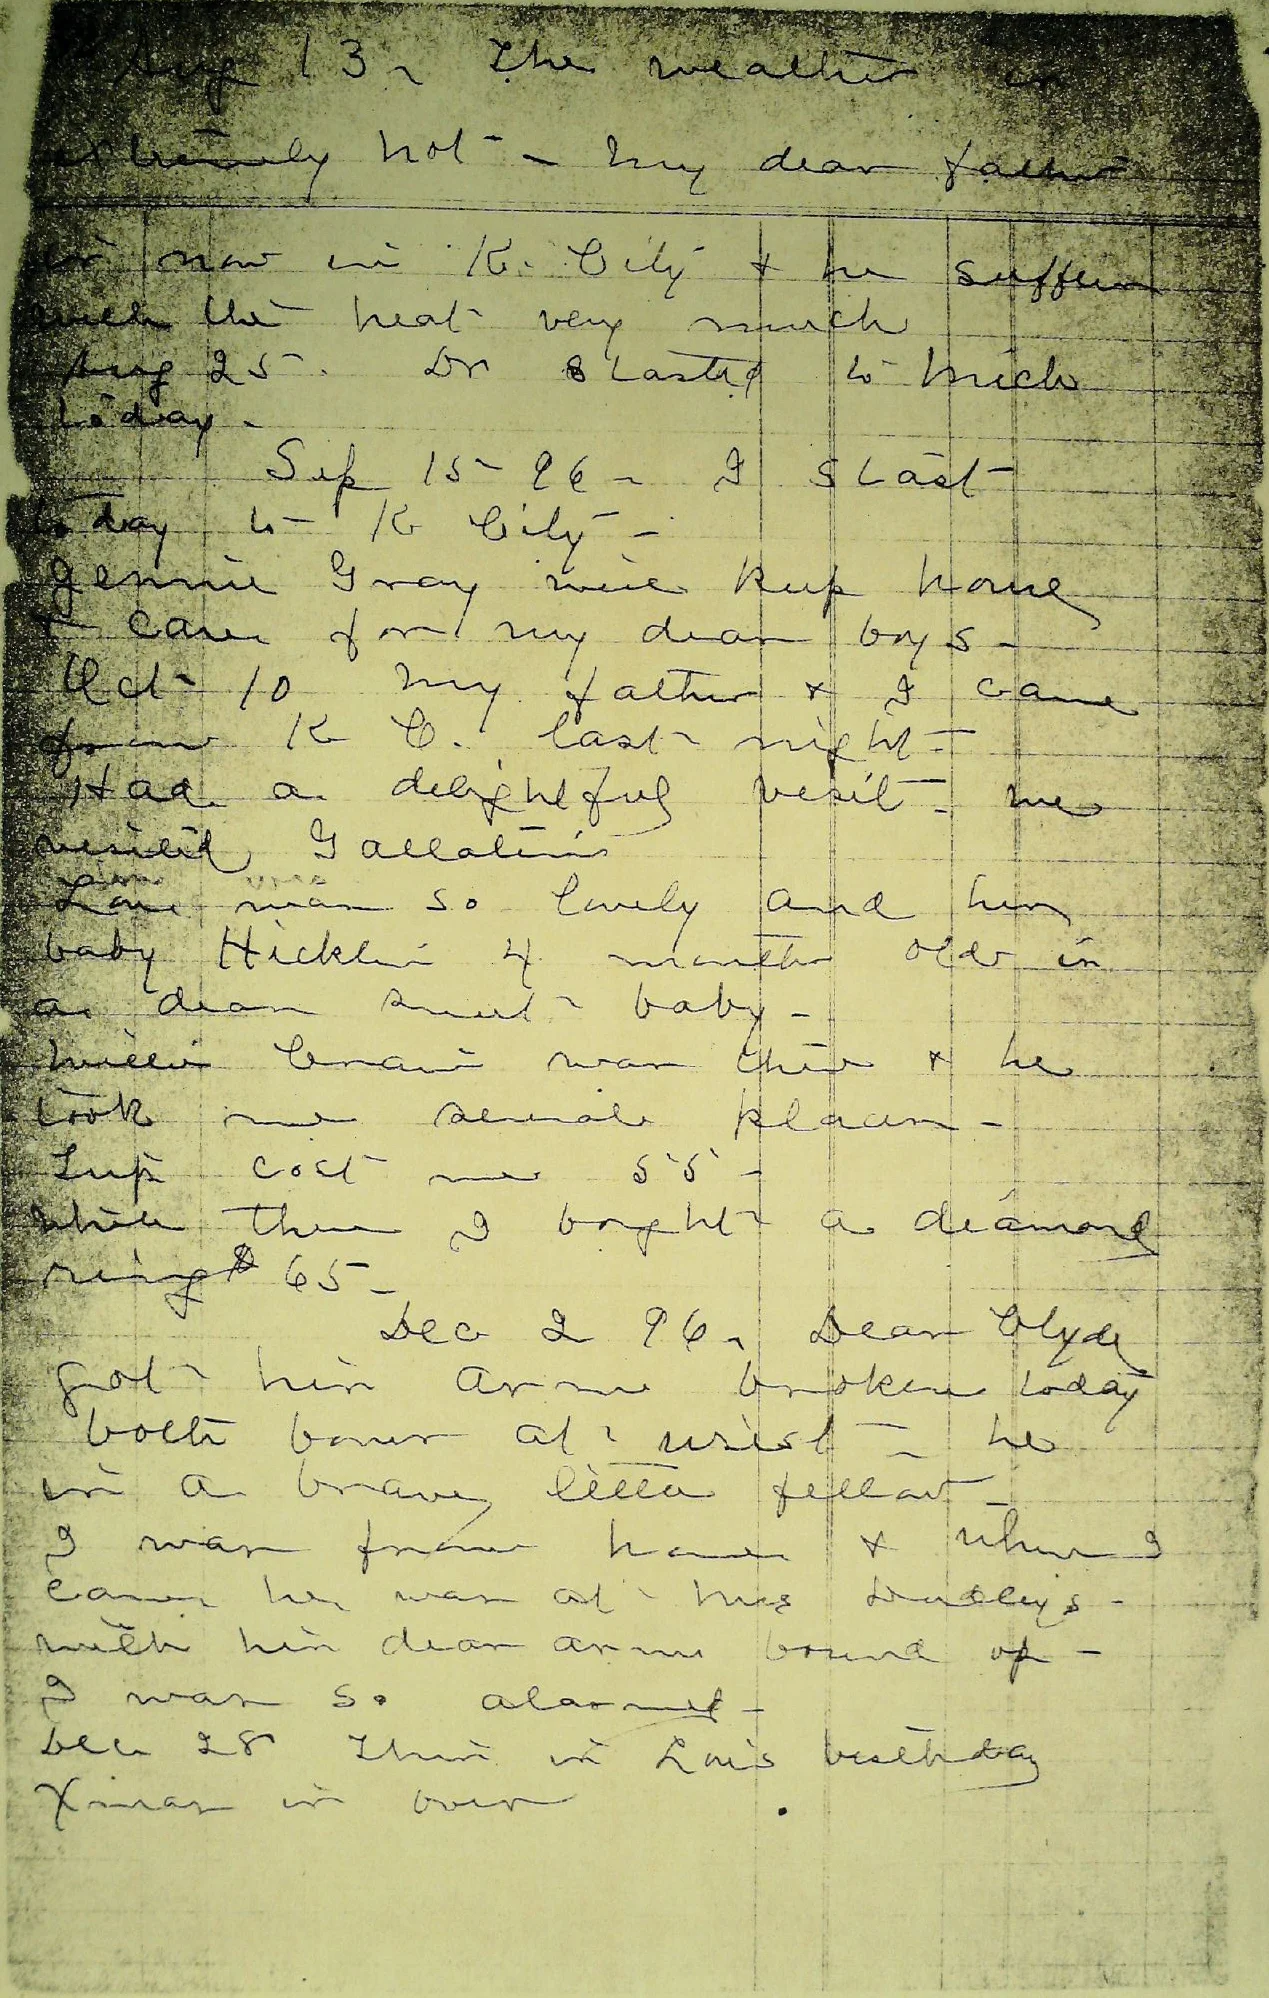 Aug 13 - The weather is
extremely hot - My dear father
is now in K. City & he suffers
with the heat very much
Aug 25. Dr started to Mich
today.
Sep 15 - 96 - I start
today to K City -
Jennie Gray will keep house
& care for my dear boys -
Oct 10 My father & I came
from K C. last night -
Had a delightful visit - we
visited Gallatin
was so lovely and her
baby Hicklin 4 months old is
a dear sweet baby -
Willie Craw was there & he
took me several places -
Trip cost me 55 -
While there I bought a diamond
ring $ 65 -
Dec 2 96, Dear Clyde
got his arm broken today
both bones at wrist - he
is a brave little fellow -
I was from home & when I
came he was at Mrs Dudleys -
with his dear arm bound up -
I was so alarmed -
Dec 28 This is Lois birthday
Xmas is over